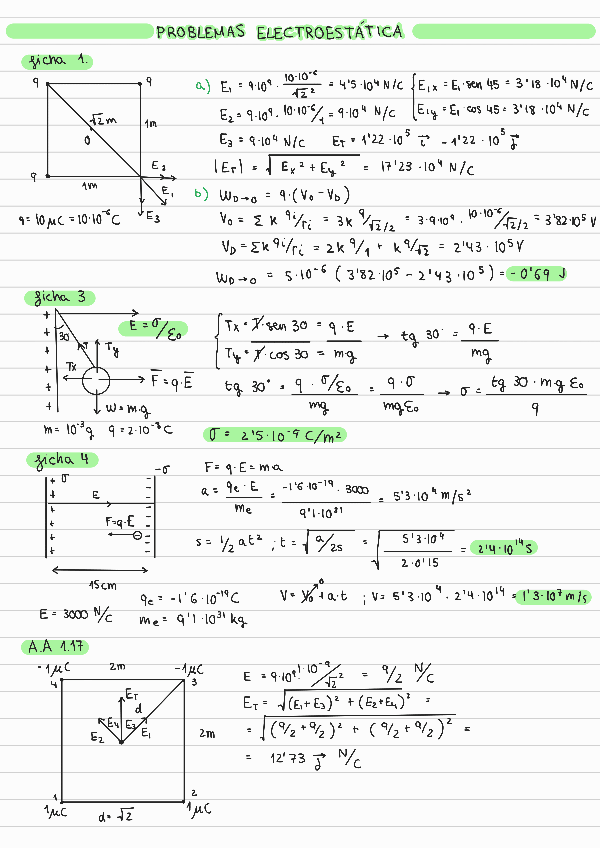 PROBLEMAS ELECTROESTÁTICA
ficha 1.
q q
√2 m
1m
O
q
1m
E2
E1
E3
q = 10 μC = 10·10⁻⁶ C
a) E1 = 9·10⁹ · 10·10⁻⁶/√2² = 4'5·10⁴ N/C { E1x = E1·sen 45 = 3'18·10⁴ N/C
E1y = E1·cos 45 = 3'18·10⁴ N/C
E2 = 9·10⁹ · 10·10⁻⁶/1 = 9·10⁴ N/C
E3 = 9·10⁴ N/C ET = 1'22·10⁵ i⃗ - 1'22·10⁵ j⃗
|ET| = √(Ex² + Ey²) = 17'23·10⁴ N/C
b) WD→O = q·(VO - VD)
VO = Σ K qi/ri = 3K q/√2/2 = 3·9·10⁹ · 10·10⁻⁶/√2/2 = 3'82·10⁵ V
VD = Σ K qi/ri = 2K q/1 + K q/√2 = 2'43·10⁵ V
WD→O = 5·10⁻⁶ (3'82·10⁵ - 2'43·10⁵) = -0'69 J
ficha 3
E = σ/ε0
30
T
Ty
Tx
F = q·E
W = m·g
m = 10⁻³ g q = 2·10⁻⁸ C
{ Tx = T·sen 30 = q·E → tg 30° = q·E/mg
Ty = T·cos 30 = mg
tg 30° = q·σ/ε0/mg = q·σ/mgε0 → σ = tg 30·mg ε0/q
σ = 2'5·10⁻⁹ C/m²
ficha 4
σ -σ
E
F=q·E
15cm
E = 3000 N/C
F = q·E = m·a
a = qe·E/me = -1'6·10⁻¹⁹ · 3000/9'1·10³¹ = 5'3·10⁴ m/s²
s = 1/2 at² ; t = √(a/2s) = √(5'3·10⁴/2·0'15) = 2'4·10¹⁴ s
qe = -1'6·10⁻¹⁹ C V = V0 + a·t ; V = 5'3·10⁴ · 2'4·10¹⁴ = 1'3·10⁷ m/s
0
me = 9'1·10³¹ kg
A.A 1.17
-1μC 2m -1μC
4 3
ET
d
E4 E3
E2 E1
2m
1 2
1μC 1μC
d = √2
E = 9·10⁹ 1·10⁻⁹/√2² = 9/2 N/C
ET = √((E1+E3)² + (E2+E4)²) =
= √((9/2 + 9/2)² + (9/2 + 9/2)²) =
= 12'73 j⃗ N/C